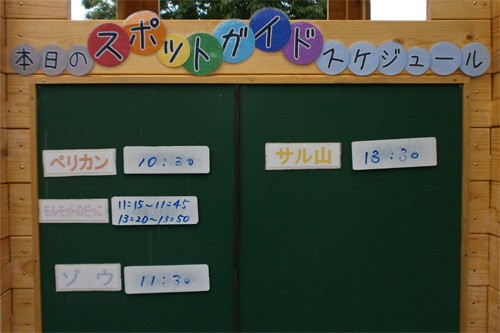 本日のスポットガイドスケジュール
ペリカン 10:30
モルモットのだっこ 11:15~11:45
13:20~13:50
ゾウ 11:30
サル山 13:30